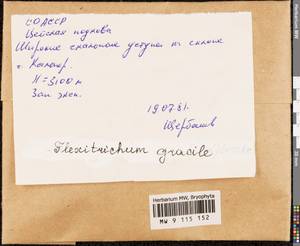 СОАССР
Цейская подкова
Широкие скальные уступы на склоне
г. Кальпер.
H = 3100 м
Зап. эксп.
19.07.81.
Щербаков
Flexitrichum gracile
Herbarium MW, Bryophyta
MW 9 115 152